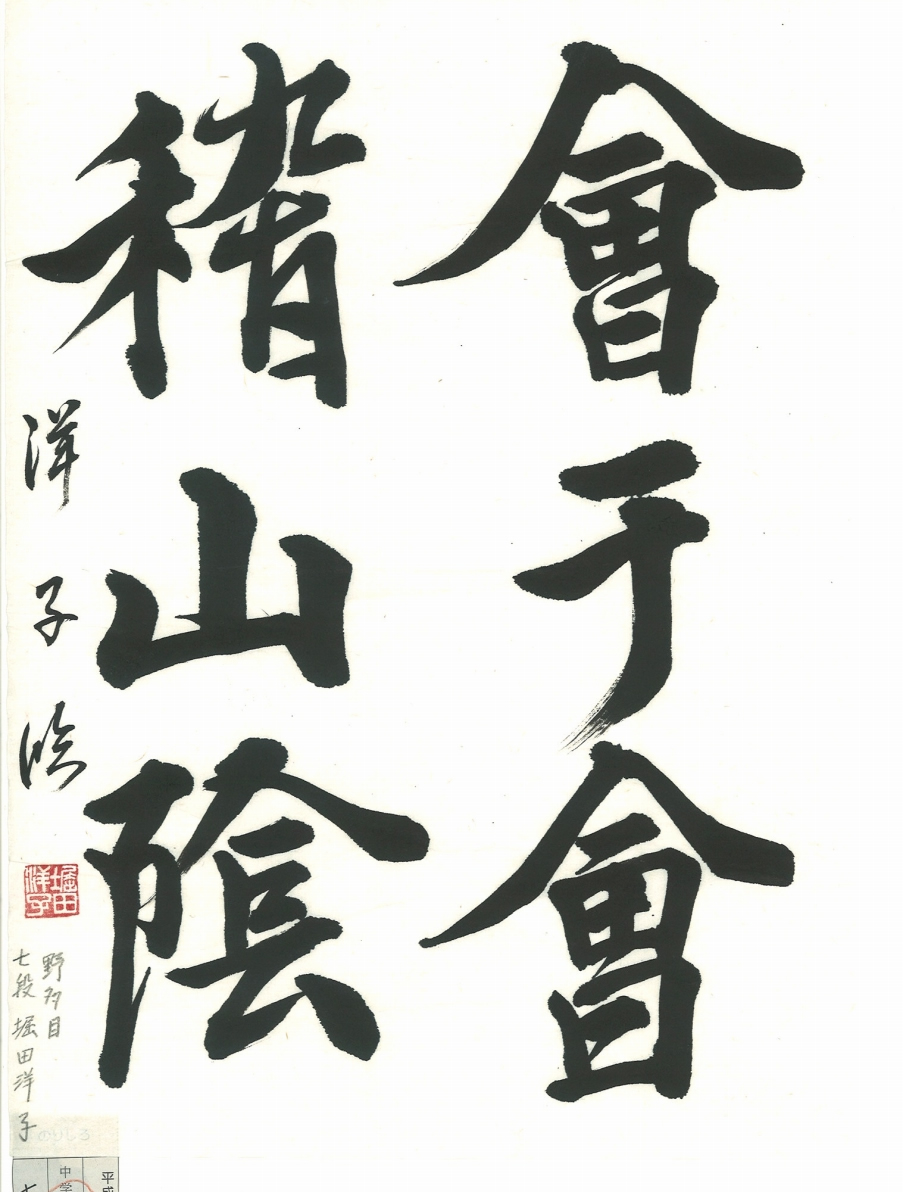 會于會
稽山陰
洋子臨
堀田
洋子
野多目
七段 堀田洋子
のりしろ
平成
中学